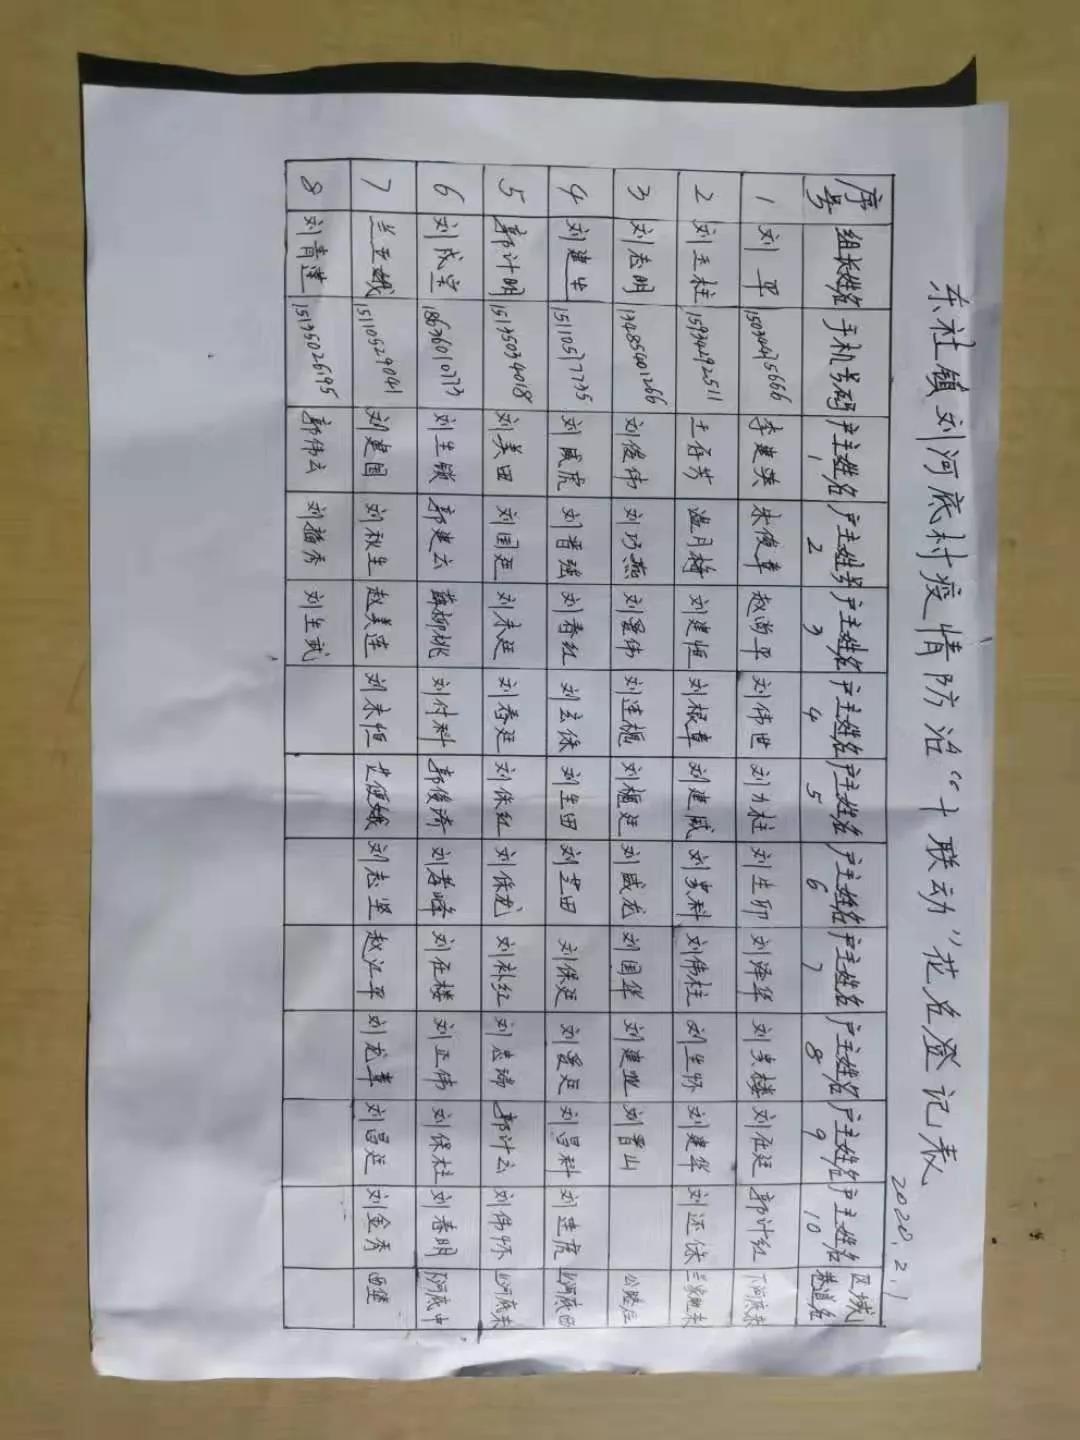 东社镇刘河底村疫情防治“十联动”花名登记表
2020.2.1
序号 组长姓名 手机号码 户主姓名1 户主姓号2 户主姓名3 户主姓名4 户主姓名5 户主姓名6 户主姓名7 户主姓名8 户主姓名9 户主姓名10 区域巷道名
1 刘平 15034475666 李建英 宋俊章 赵尚平 刘伟世 刘力柱 刘生卯 刘泽华 刘买楼 刘在廷 郭计红 下河底东
2 刘玉柱 15934292511 王存芳 温月梅 刘建恒 刘根章 刘建威 刘买科 刘伟柱 刘生怀 刘建华 刘还保
3 刘志明 13485401266 刘俊伟 刘巧燕 刘爱伟 刘连栀 刘栀廷 刘威龙 刘国华 刘建业 刘晋山
4 刘建生 15110577735 刘威虎 刘晋强 刘春红 刘玄保 刘生田 刘芝田 刘保廷 刘爱廷 刘昌科 刘建虎 上河底西
5 郭计明 15135034018 刘美田 刘国廷 刘来廷 刘春廷 刘保红 刘保龙 刘补红 刘志瑞 郭计云 刘伟怀 上河底东
6 刘成宝 18636010773 刘生锁 郭建云 薛柳桃 刘付科 郭俊涛 刘孝峰 刘在楼 刘正伟 刘保柱 刘春明 下河底中
7 兰亚娥 15110529041 刘建国 刘秋生 赵美连 刘来恒 刘志坚 赵江平 刘龙章 刘昌廷 刘金秀 西堡
8 刘青莲 15135026195 郭伟云 刘梅秀 刘生武